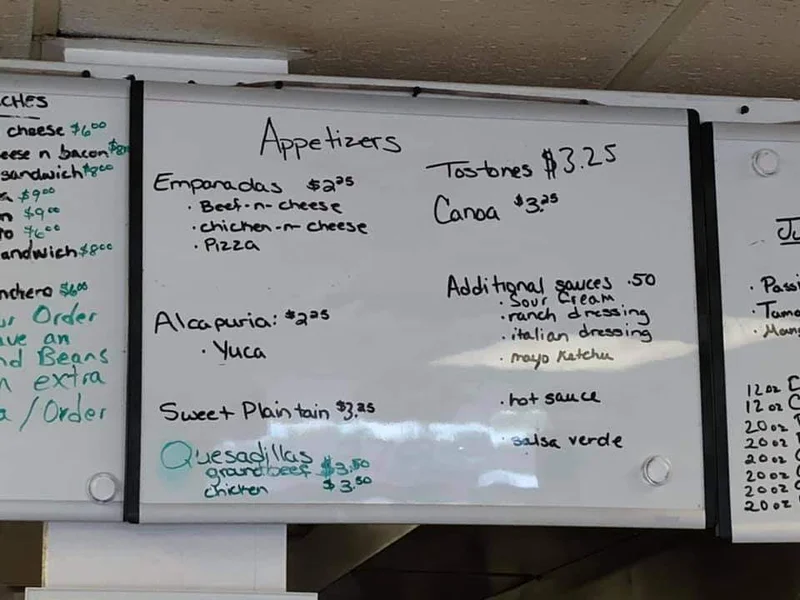 CHES
cheese $6.00
eese n bacon $8
sandwich $8.00
$9.00
n $9.00
ro $6.00
andwich $8.00
nchero $6.00
ur Order
ave an
nd Beans
n extra
a / Order
Appetizers
Empanadas $2.25
• Beef-n-cheese
• chicken-n-cheese
• Pizza
Alcapuria: $2.25
• Yuca
Sweet Plaintain $3.25
Quesadillas
groundbeef $3.50
chicken $3.50
Tostones $3.25
Canoa $3.25
Additional sauces .50
• Sour Cream
• ranch dressing
• italian dressing
• mayo Ketchu
• hot sauce
• salsa verde
Ju
• Passi
• Tama
• Mang
12 oz
12 oz
20 oz
20 oz
20 oz
20 oz
20 oz
20 oz